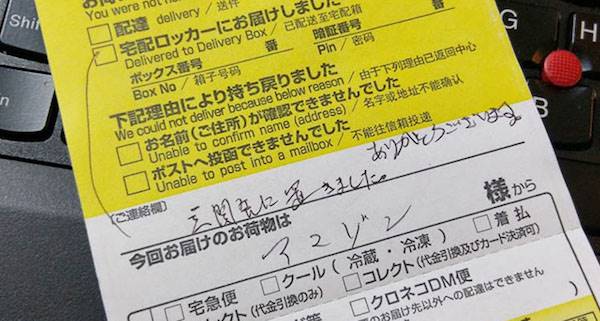 You were not
Shift
配達 delivery / 送件
宅配ロッカーにお届けしました
Delivered to Delivery Box / 已配送至宅配箱
ボックス番号 番 暗証番号 番
Box No / 箱子号码 Pin / 密码
下記理由により持ち戻りました
We could not deliver because below reason / 由于下列理由已返回中心
お名前(ご住所)が確認できませんでした
Unable to confirm name (address) / 名字或地址不能确认
ポストへ投函できませんでした
Unable to post into a mailbox / 不能往信箱投递
ありがとうございます
(ご連絡欄) 玄関先に置きました。
今回お届けのお荷物は
アマゾン 様から
宅急便 クール(冷蔵・冷凍) 着払
レクト(代金引換のみ) コレクト(代金引換及びカード決済可)
クロネコDM便
のお届け先以外への配達はできません
G
H
B
N